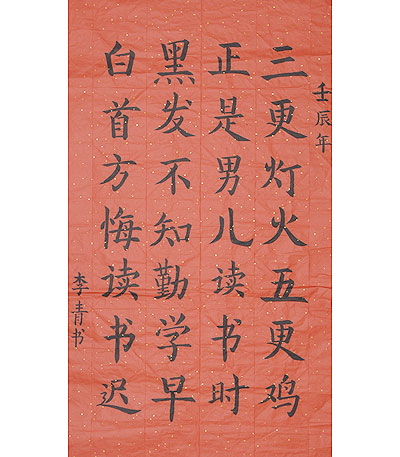 壬辰年
三更灯火五更鸡
正是男儿读书时
黑发不知勤学早
白首方悔读书迟
李青书